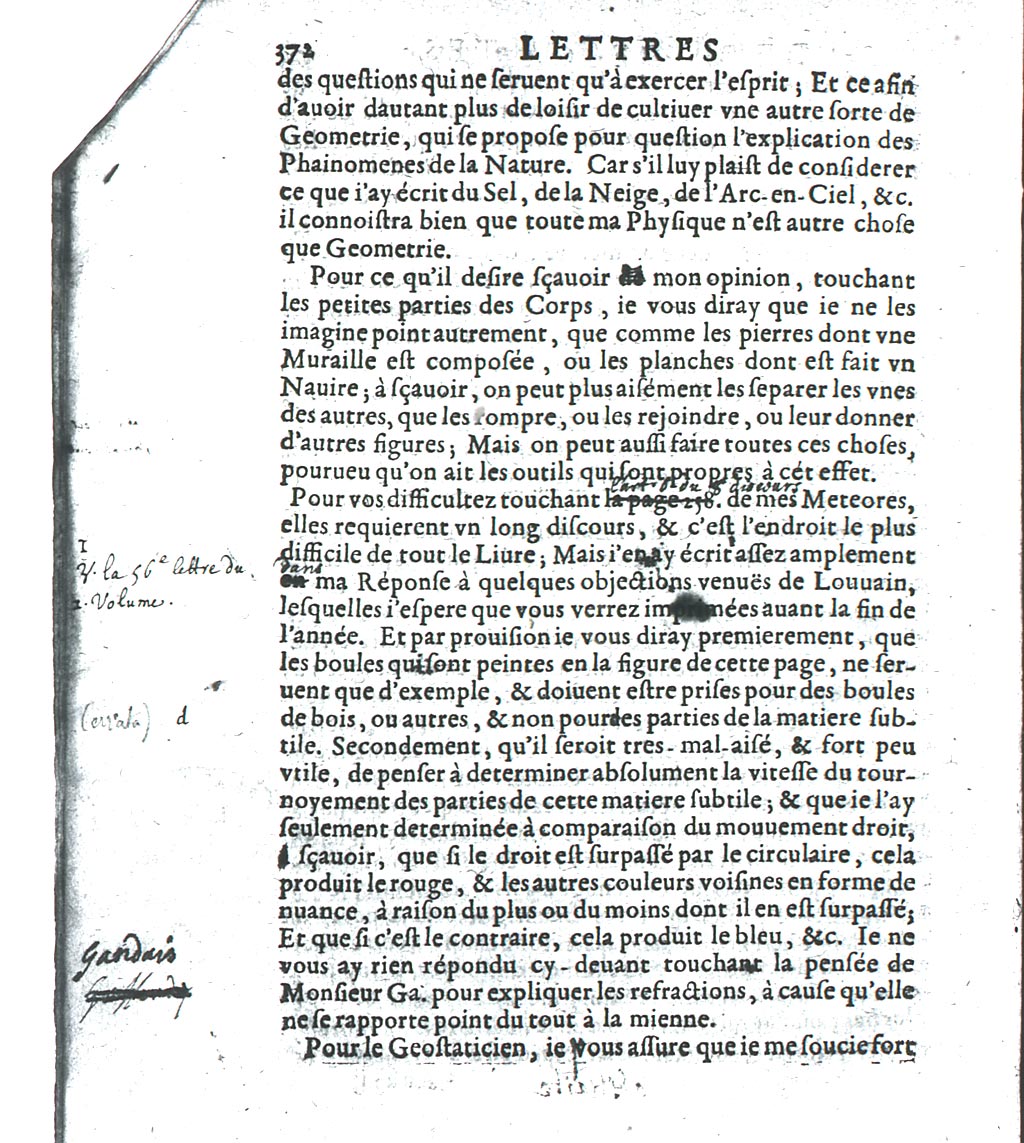 372 LETTRES
des queſtions qui ne ſeruent qu'à exercer l'eſprit ; Et ce afin
d'auoir dautant plus de loiſir de cultiuer vne autre ſorte de
Geometrie, qui ſe propoſe pour queſtion l'explication des
Phainomenes de la Nature. Car s'il luy plaiſt de conſiderer
ce que i'ay écrit du Sel, de la Neige, de l'Arc-en-Ciel, &c.
il connoiſtra bien que toute ma Phyſique n'eſt autre choſe
que Geometrie.
Pour ce qu'il deſire ſçauoir mon opinion, touchant
les petites parties des Corps, ie vous diray que ie ne les
imagine point autrement, que comme les pierres dont vne
Muraille eſt composée, ou les planches dont eſt fait vn
Nauire ; à ſçauoir, on peut plus aiſément les ſeparer les vnes
des autres, que les rompre, ou les rejoindre, ou leur donner
d'autres figures ; Mais on peut auſſi faire toutes ces choſes,
pourueu qu'on ait les outils qui ſont propres à cét effet.
l'art. 8 du 8e discours
Pour vos difficultez touchant la page 258. de mes Meteores,
elles requierent vn long diſcours, & c'eſt l'endroit le plus
1
difficile de tout le Liure ; Mais i'en ay écrit aſſez amplement
V. la 56e lettre du
dans
en ma Réponſe à quelques objections venuës de Louuain,
2. Volume.
leſquelles i'eſpere que vous verrez imprimées auant la fin de
l'année. Et par prouiſion ie vous diray premierement, que
les boules qui ſont peintes en la figure de cette page, ne ſer-
uent que d'exemple, & doiuent eſtre priſes pour des boules
(errata) d
de bois, ou autres, & non pour des parties de la matiere ſub-
tile. Secondement, qu'il ſeroit tres-mal-aiſé, & fort peu
vtile, de penſer à determiner abſolument la viteſſe du tour-
noyement des parties de cette matiere ſubtile ; & que ie l'ay
ſeulement determinée à comparaiſon du mouuement droit,
ſçauoir, que ſi le droit eſt ſurpaſſé par le circulaire, cela
produit le rouge, & les autres couleurs voiſines en forme de
nuance, à raiſon du plus ou du moins dont il en eſt ſurpaſſé ;
Et que ſi c'eſt le contraire, cela produit le bleu, &c. Ie ne
Gandais
vous ay rien répondu cy-deuant touchant la penſée de
Monſieur Ga. pour expliquer les refractions, à cauſe qu'elle
ne ſe rapporte point du tout à la mienne.
Pour le Geoſtaticien, ie vous aſſure que ie me ſoucie fort